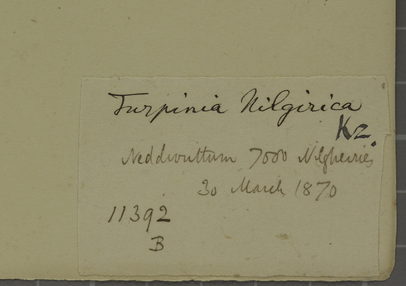 Turpinia Nilgirica
Kz.
Neddivuttum 7000 Nilgheiries
30 March 1870
11392
B